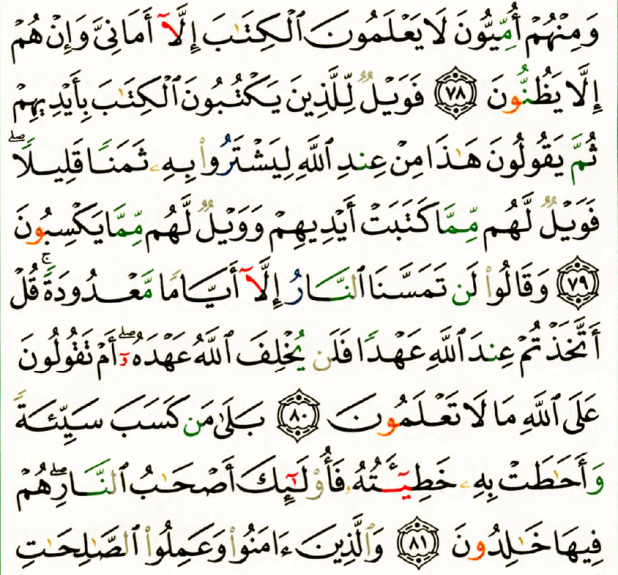 وَمِنْهُمْ أُمِّيُّونَ لَا يَعْلَمُونَ ٱلْكِتَٰبَ إِلَّآ أَمَانِىَّ وَإِنْ هُمْ
إِلَّا يَظُنُّونَ ٧٨ فَوَيْلٌ لِّلَّذِينَ يَكْتُبُونَ ٱلْكِتَٰبَ بِأَيْدِيهِمْ
ثُمَّ يَقُولُونَ هَٰذَا مِنْ عِندِ ٱللَّهِ لِيَشْتَرُوا۟ بِهِۦ ثَمَنًا قَلِيلًا ۖ
فَوَيْلٌ لَّهُم مِّمَّا كَتَبَتْ أَيْدِيهِمْ وَوَيْلٌ لَّهُم مِّمَّا يَكْسِبُونَ
٧٩ وَقَالُوا۟ لَن تَمَسَّنَا ٱلنَّارُ إِلَّآ أَيَّامًا مَّعْدُودَةً ۚ قُلْ
أَتَّخَذْتُمْ عِندَ ٱللَّهِ عَهْدًا فَلَن يُخْلِفَ ٱللَّهُ عَهْدَهُۥٓ ۖ أَمْ تَقُولُونَ
عَلَى ٱللَّهِ مَا لَا تَعْلَمُونَ ٨٠ بَلَىٰ مَن كَسَبَ سَيِّئَةً
وَأَحَٰطَتْ بِهِۦ خَطِيٓـَٔتُهُۥ فَأُو۟لَٰٓئِكَ أَصْحَٰبُ ٱلنَّارِ ۖ هُمْ
فِيهَا خَٰلِدُونَ ٨١ وَٱلَّذِينَ ءَامَنُوا۟ وَعَمِلُوا۟ ٱلصَّٰلِحَٰتِ